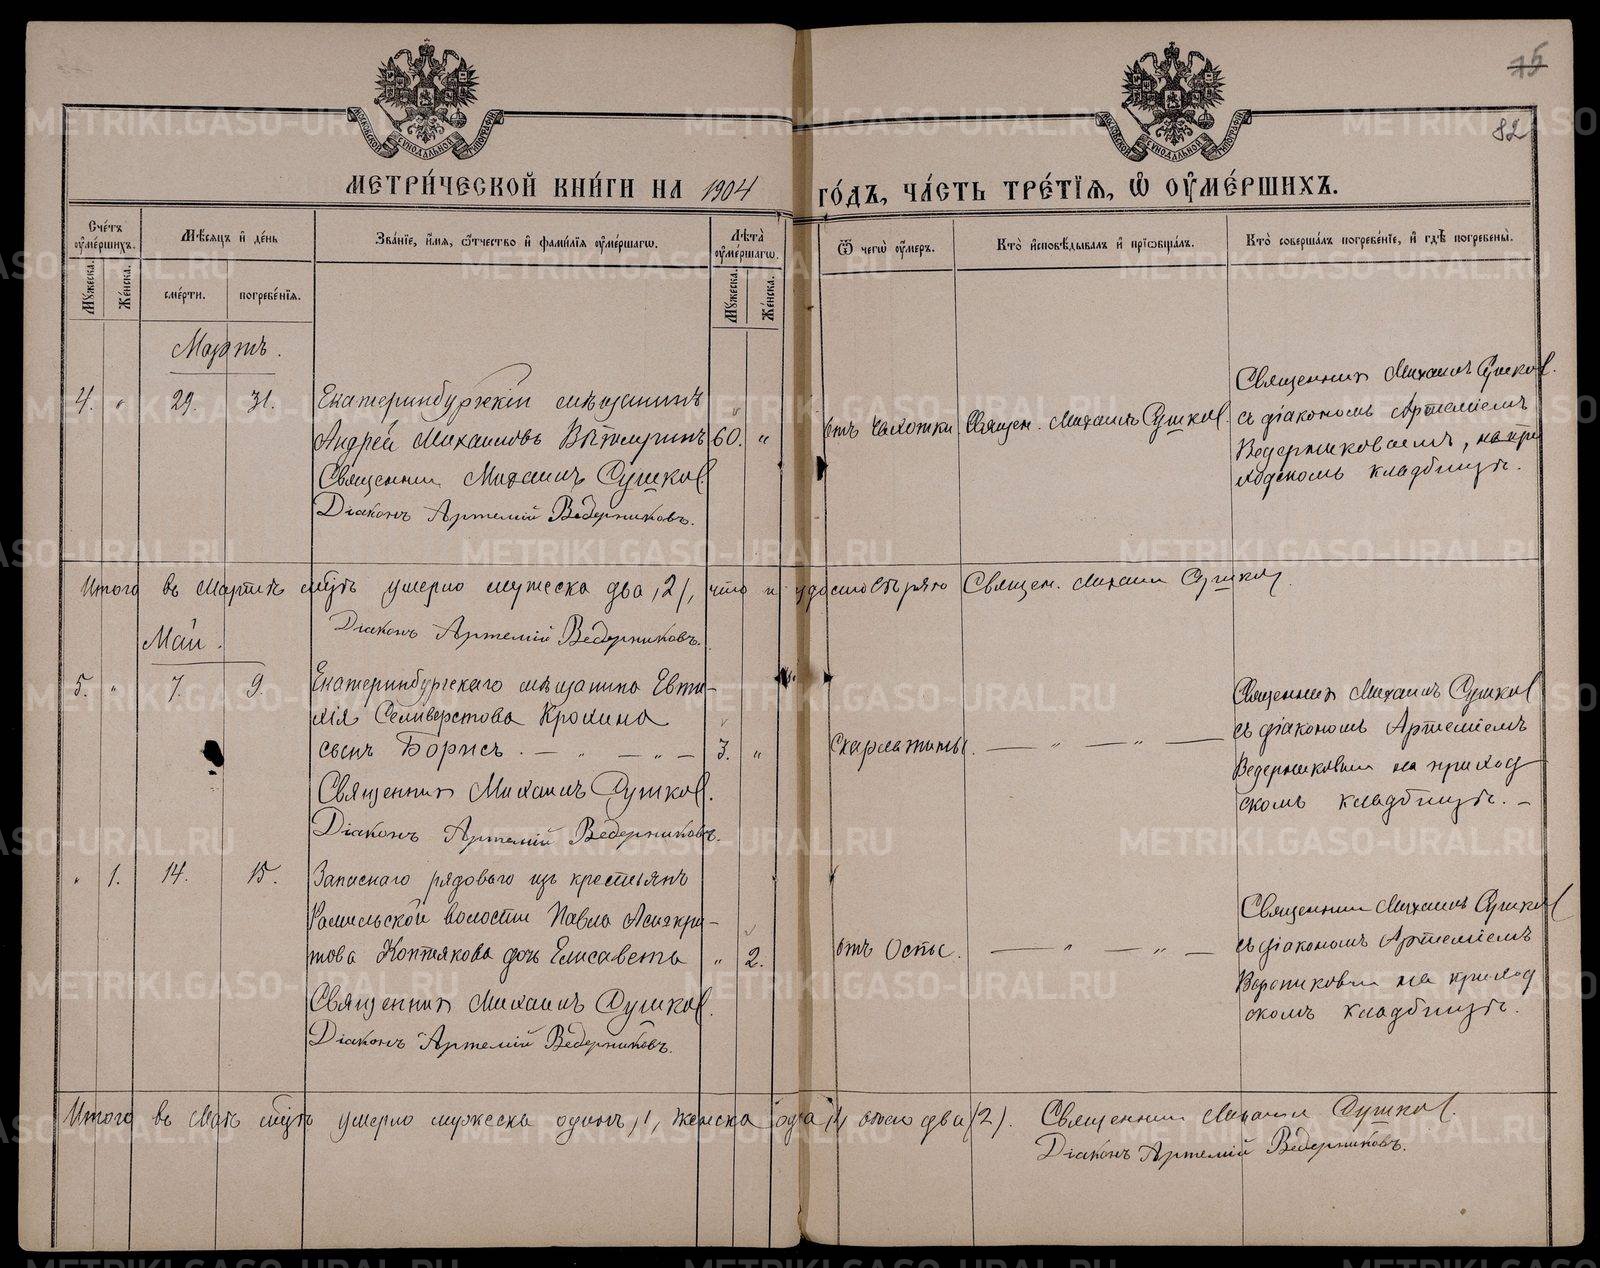 75
82
МОСКОВСКОЙ СѴНОДАЛЬНОЙ ТИПОГРАФІИ
МОСКОВСКОЙ СѴНОДАЛЬНОЙ ТИПОГРАФІИ
МЕТРИ́ЧЕСКОЙ КНИ́ГИ НА 1904 ГО́ДЪ, ЧА́СТЬ ТРЕ́ТІЯ, Ѡ҆ ОУ҆МЕ́РШИХЪ.
Сче́тъ оу҆ме́ршихъ.
Мꙋжеска.
Же́нска.
Мѣ́сяцъ и҆ де́нь
сме́рти.
погребе́нїя.
Зва́нїе, и҆́мя, ѻ҆́тчество и҆ фами́лїя оу҆ме́ршагѡ.
Лѣта̀ оу҆ме́ршагѡ.
Мꙋжеска.
Же́нска.
Ѿ чегѡ̀ оу҆́меръ.
Кто̀ и҆сповѣ́дывалъ и҆ прїѡбща́лъ.
Кто̀ соверша́лъ погребе́нїе, и҆ гдѣ̀ погребены̀.
Мартъ.
4. " 29. 31. Екатеринбургскій мѣщанинъ
Андрей Михаиловъ 60. "
Священник Михаилъ Сушков.
Діаконъ Артемій Ведерниковъ.
отъ чахотки Священ. Михаилъ Сушков.
Священник Михаилъ Сушков.
съ діакономъ Артеміемъ
Ведерниковымъ, на при
ходскомъ кладбищѣ.
Итого въ Мартѣ мцѣ умерло мужеска два /2/, что и удостовѣряю Священ. Михаил Сушков.
Діаконъ Артемій Ведерниковъ.
Май.
5. " 7. 9. Екатеринбургскаго мѣщанина Евти-
хія Селиверстова Крохина
сынъ Борисъ. — " — " — 3. "
Священник Михаилъ Сушков.
Діаконъ Артемій Ведерниковъ.
Скарлатины. — " — " —
Священник Михаилъ Сушков
съ діакономъ Артеміемъ
Ведерниковым на приход
скомъ кладбищѣ. —
" 1. 14. 15. Запаснаго рядоваго изъ крестьянъ
волости Павла Асинкри-
това Коптякова дочь Елисавета " 2.
Священник Михаилъ Сушков.
Діаконъ Артемій Ведерниковъ.
отъ Оспы. — " — " —
Священник Михаилъ Сушков
съ діакономъ Артеміемъ
на приход
скомъ кладбищѣ.
Итого въ Маѣ мцѣ умерло мужеска одинъ /1/, женска одна /1/ обоего два /2/. Священник Михаил Сушков.
Діаконъ Артемій Ведерниковъ.
METRIKI.GASO-URAL.RU